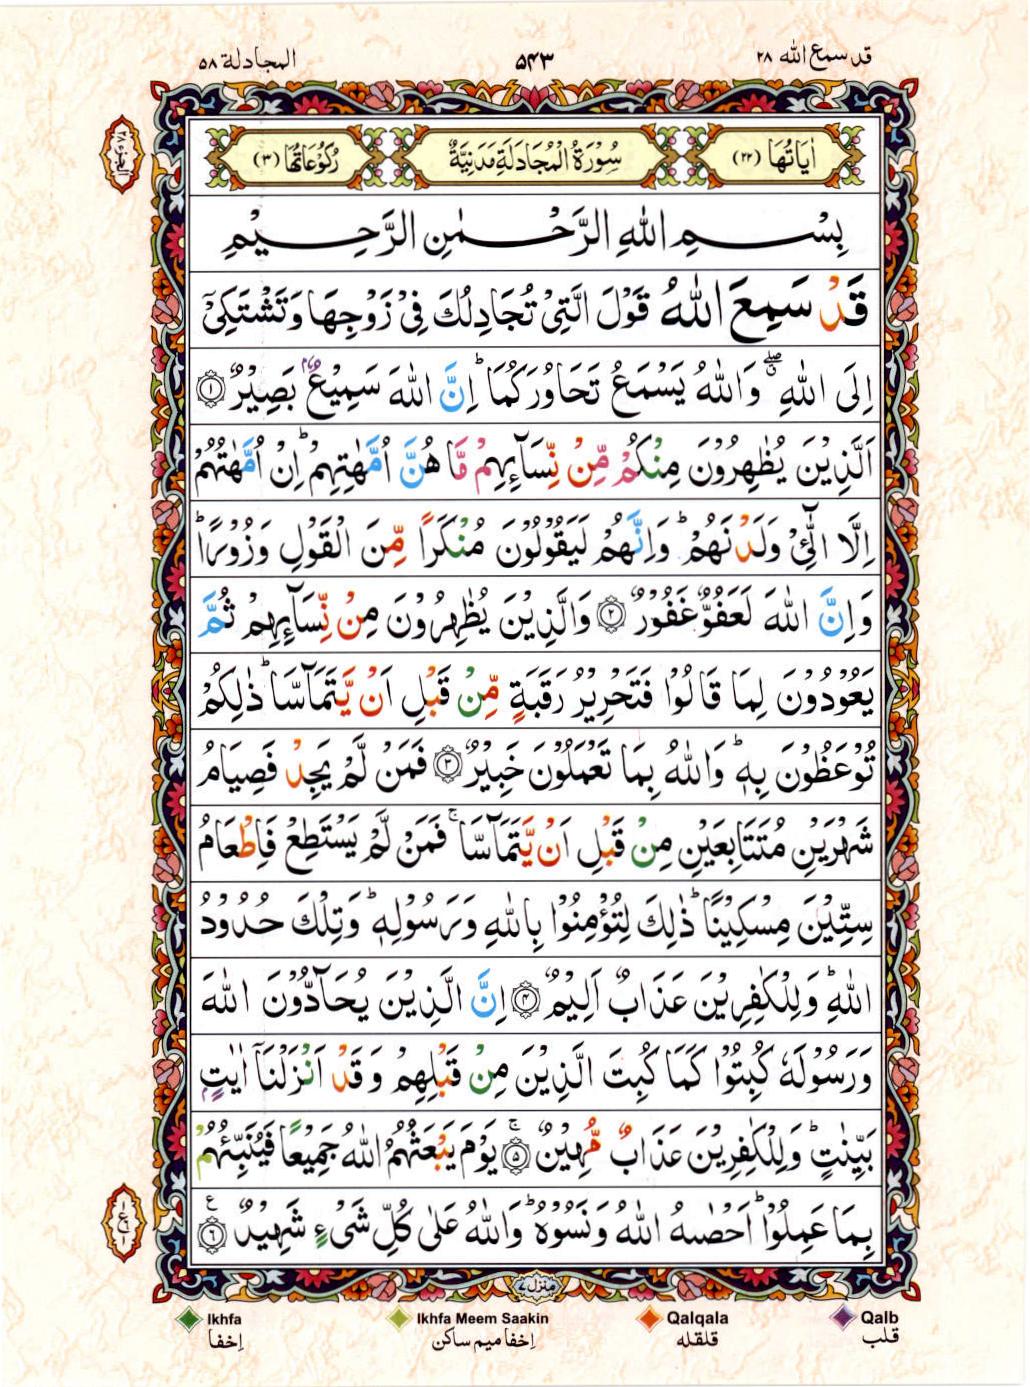 المجادلة ٥٨
٥٤٣
قد سمع الله ٢٨
الجزء ٢٨
اٰيَاتُهَا (٢٢)
سُوْرَةُ الْمُجَادَلَةِ مَدَنِيَّةٌ
رُكُوْعَاتُهَا (٣)
بِسْمِ اللّٰهِ الرَّحْمٰنِ الرَّحِيْمِ
قَدْ سَمِعَ اللّٰهُ قَوْلَ الَّتِيْ تُجَادِلُكَ فِيْ زَوْجِهَا وَتَشْتَكِيْٓ
اِلَى اللّٰهِ ۖ وَاللّٰهُ يَسْمَعُ تَحَاوُرَكُمَا ؕ اِنَّ اللّٰهَ سَمِيْعٌۢ بَصِيْرٌ ﴿١﴾
اَلَّذِيْنَ يُظٰهِرُوْنَ مِنْكُمْ مِّنْ نِّسَآئِهِمْ مَّا هُنَّ اُمَّهٰتِهِمْ ؕ اِنْ اُمَّهٰتُهُمْ
اِلَّا الّٰٓـِٔيْ وَلَدْنَهُمْ ؕ وَاِنَّهُمْ لَيَقُوْلُوْنَ مُنْكَرًا مِّنَ الْقَوْلِ وَزُوْرًا ؕ
وَاِنَّ اللّٰهَ لَعَفُوٌّ غَفُوْرٌ ﴿٢﴾ وَالَّذِيْنَ يُظٰهِرُوْنَ مِنْ نِّسَآئِهِمْ ثُمَّ
يَعُوْدُوْنَ لِمَا قَالُوْا فَتَحْرِيْرُ رَقَبَةٍ مِّنْ قَبْلِ اَنْ يَّتَمَآسَّا ؕ ذٰلِكُمْ
تُوْعَظُوْنَ بِهٖ ؕ وَاللّٰهُ بِمَا تَعْمَلُوْنَ خَبِيْرٌ ﴿٣﴾ فَمَنْ لَّمْ يَجِدْ فَصِيَامُ
شَهْرَيْنِ مُتَتَابِعَيْنِ مِنْ قَبْلِ اَنْ يَّتَمَآسَّا ۚ فَمَنْ لَّمْ يَسْتَطِعْ فَاِطْعَامُ
سِتِّيْنَ مِسْكِيْنًا ؕ ذٰلِكَ لِتُؤْمِنُوْا بِاللّٰهِ وَرَسُوْلِهٖ ؕ وَتِلْكَ حُدُوْدُ
اللّٰهِ ؕ وَلِلْكٰفِرِيْنَ عَذَابٌ اَلِيْمٌ ﴿٤﴾ اِنَّ الَّذِيْنَ يُحَآدُّوْنَ اللّٰهَ
وَرَسُوْلَهٗ كُبِتُوْا كَمَا كُبِتَ الَّذِيْنَ مِنْ قَبْلِهِمْ وَقَدْ اَنْزَلْنَآ اٰيٰتٍۭ
بَيِّنٰتٍ ؕ وَلِلْكٰفِرِيْنَ عَذَابٌ مُّهِيْنٌ ۚ ﴿٥﴾ يَوْمَ يَبْعَثُهُمُ اللّٰهُ جَمِيْعًا فَيُنَبِّئُهُمْ
بِمَا عَمِلُوْا ؕ اَحْصٰىهُ اللّٰهُ وَنَسُوْهُ ؕ وَاللّٰهُ عَلٰى كُلِّ شَيْءٍ شَهِيْدٌ ﴿٦﴾ ع
منزل ٧
Ikhfa
Ikhfa Meem Saakin
Qalqala
Qalb
اِخفا
اِخفا میم ساکن
قلقله
قلب